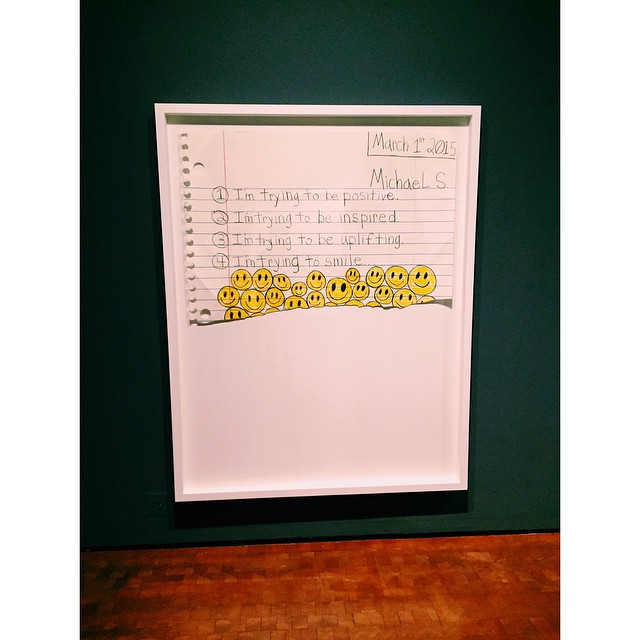 March 1st 2015
Michael S.
1 I'm trying to be positive.
2 I'm trying to be inspired
3 I'm trying to be uplifting.
4 I'm trying to smile...